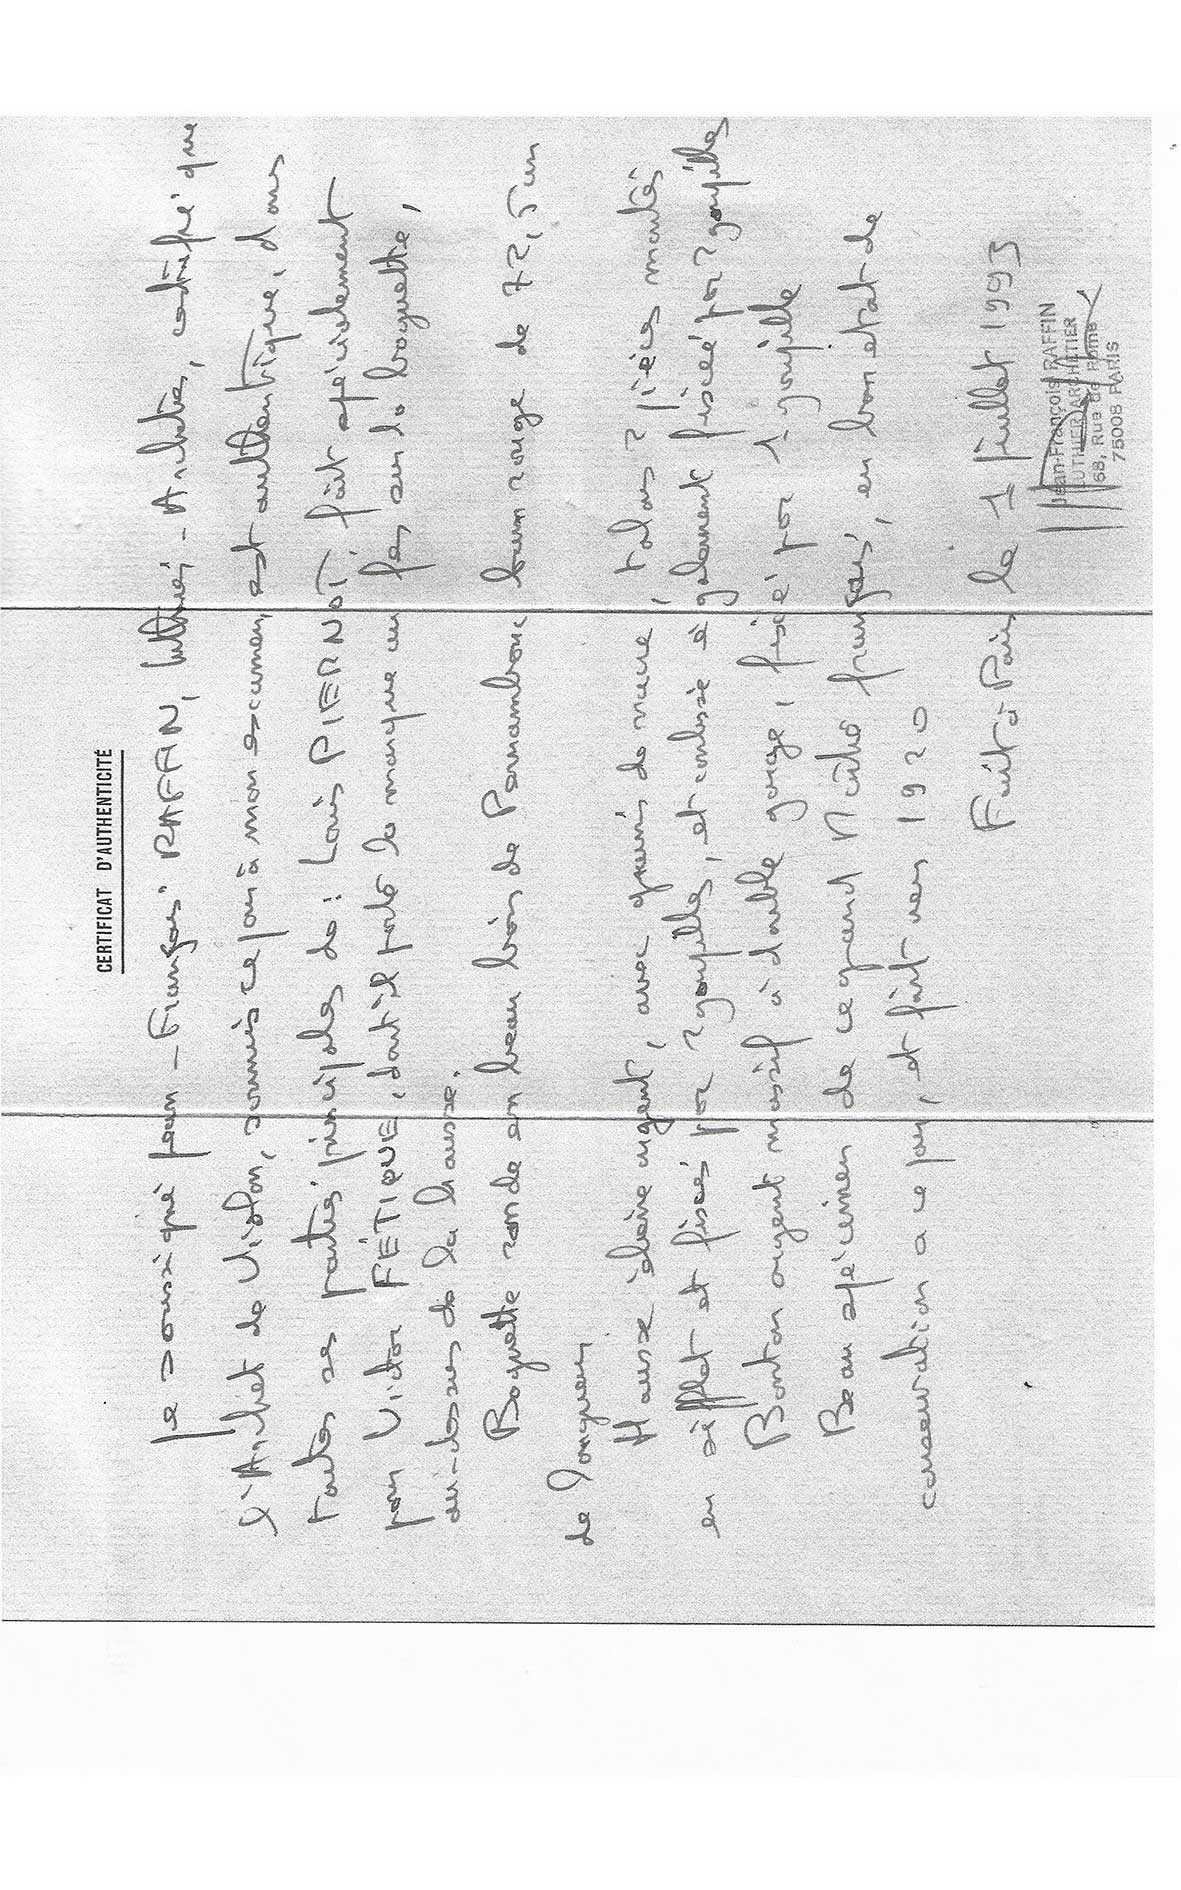 CERTIFICAT D'AUTHENTICITÉ
Je soussigné Jean-François RAFFIN, luthier-Archetier, certifie que
l'Archet de Violon, soumis ce jour à mon examen, est authentique, dans
toutes ses parties principales de: Louis PIERNOT fait spécialement
pour Victor FÉTIQUE, dont il porte la marque au fer sur la baguette,
au-dessus de la hausse.
Baguette ronde en beau bois de Pernambouc brun rouge de 72,5 cm
de longueur
Hausse ébène argent, avec grains de nacre, talons 2 pièces montés
en sifflet et fixés par 2 goupilles, et coulisse également fixée par 2 goupilles
Bouton argent massif à double gorge, fixé par 1 goupille
Beau spécimen de ce grand Maître français, en bon état de
conservation a ce jour, et fait vers 1920
Fait à Paris le 1 Juillet 1993
Jean-François RAFFIN
LUTHIER ARCHETIER
68, Rue de Rome
75008 PARIS